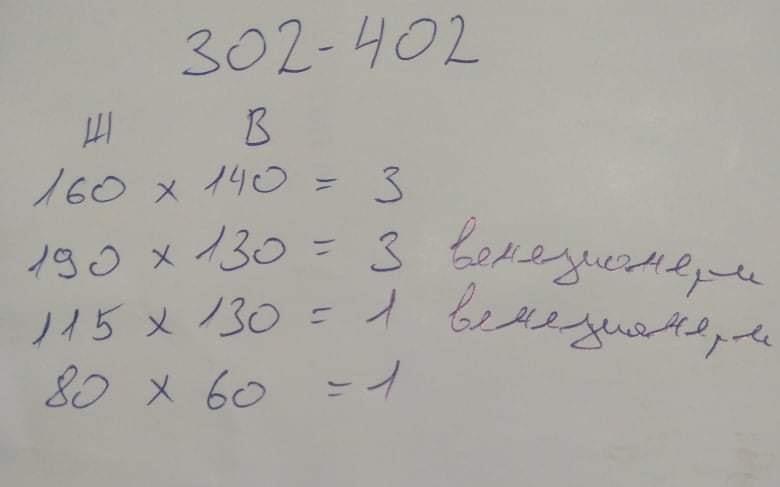 302-402
Ш В
160 x 140 = 3
190 x 130 = 3 венецианери
115 x 130 = 1 венецианери
80 x 60 = 1